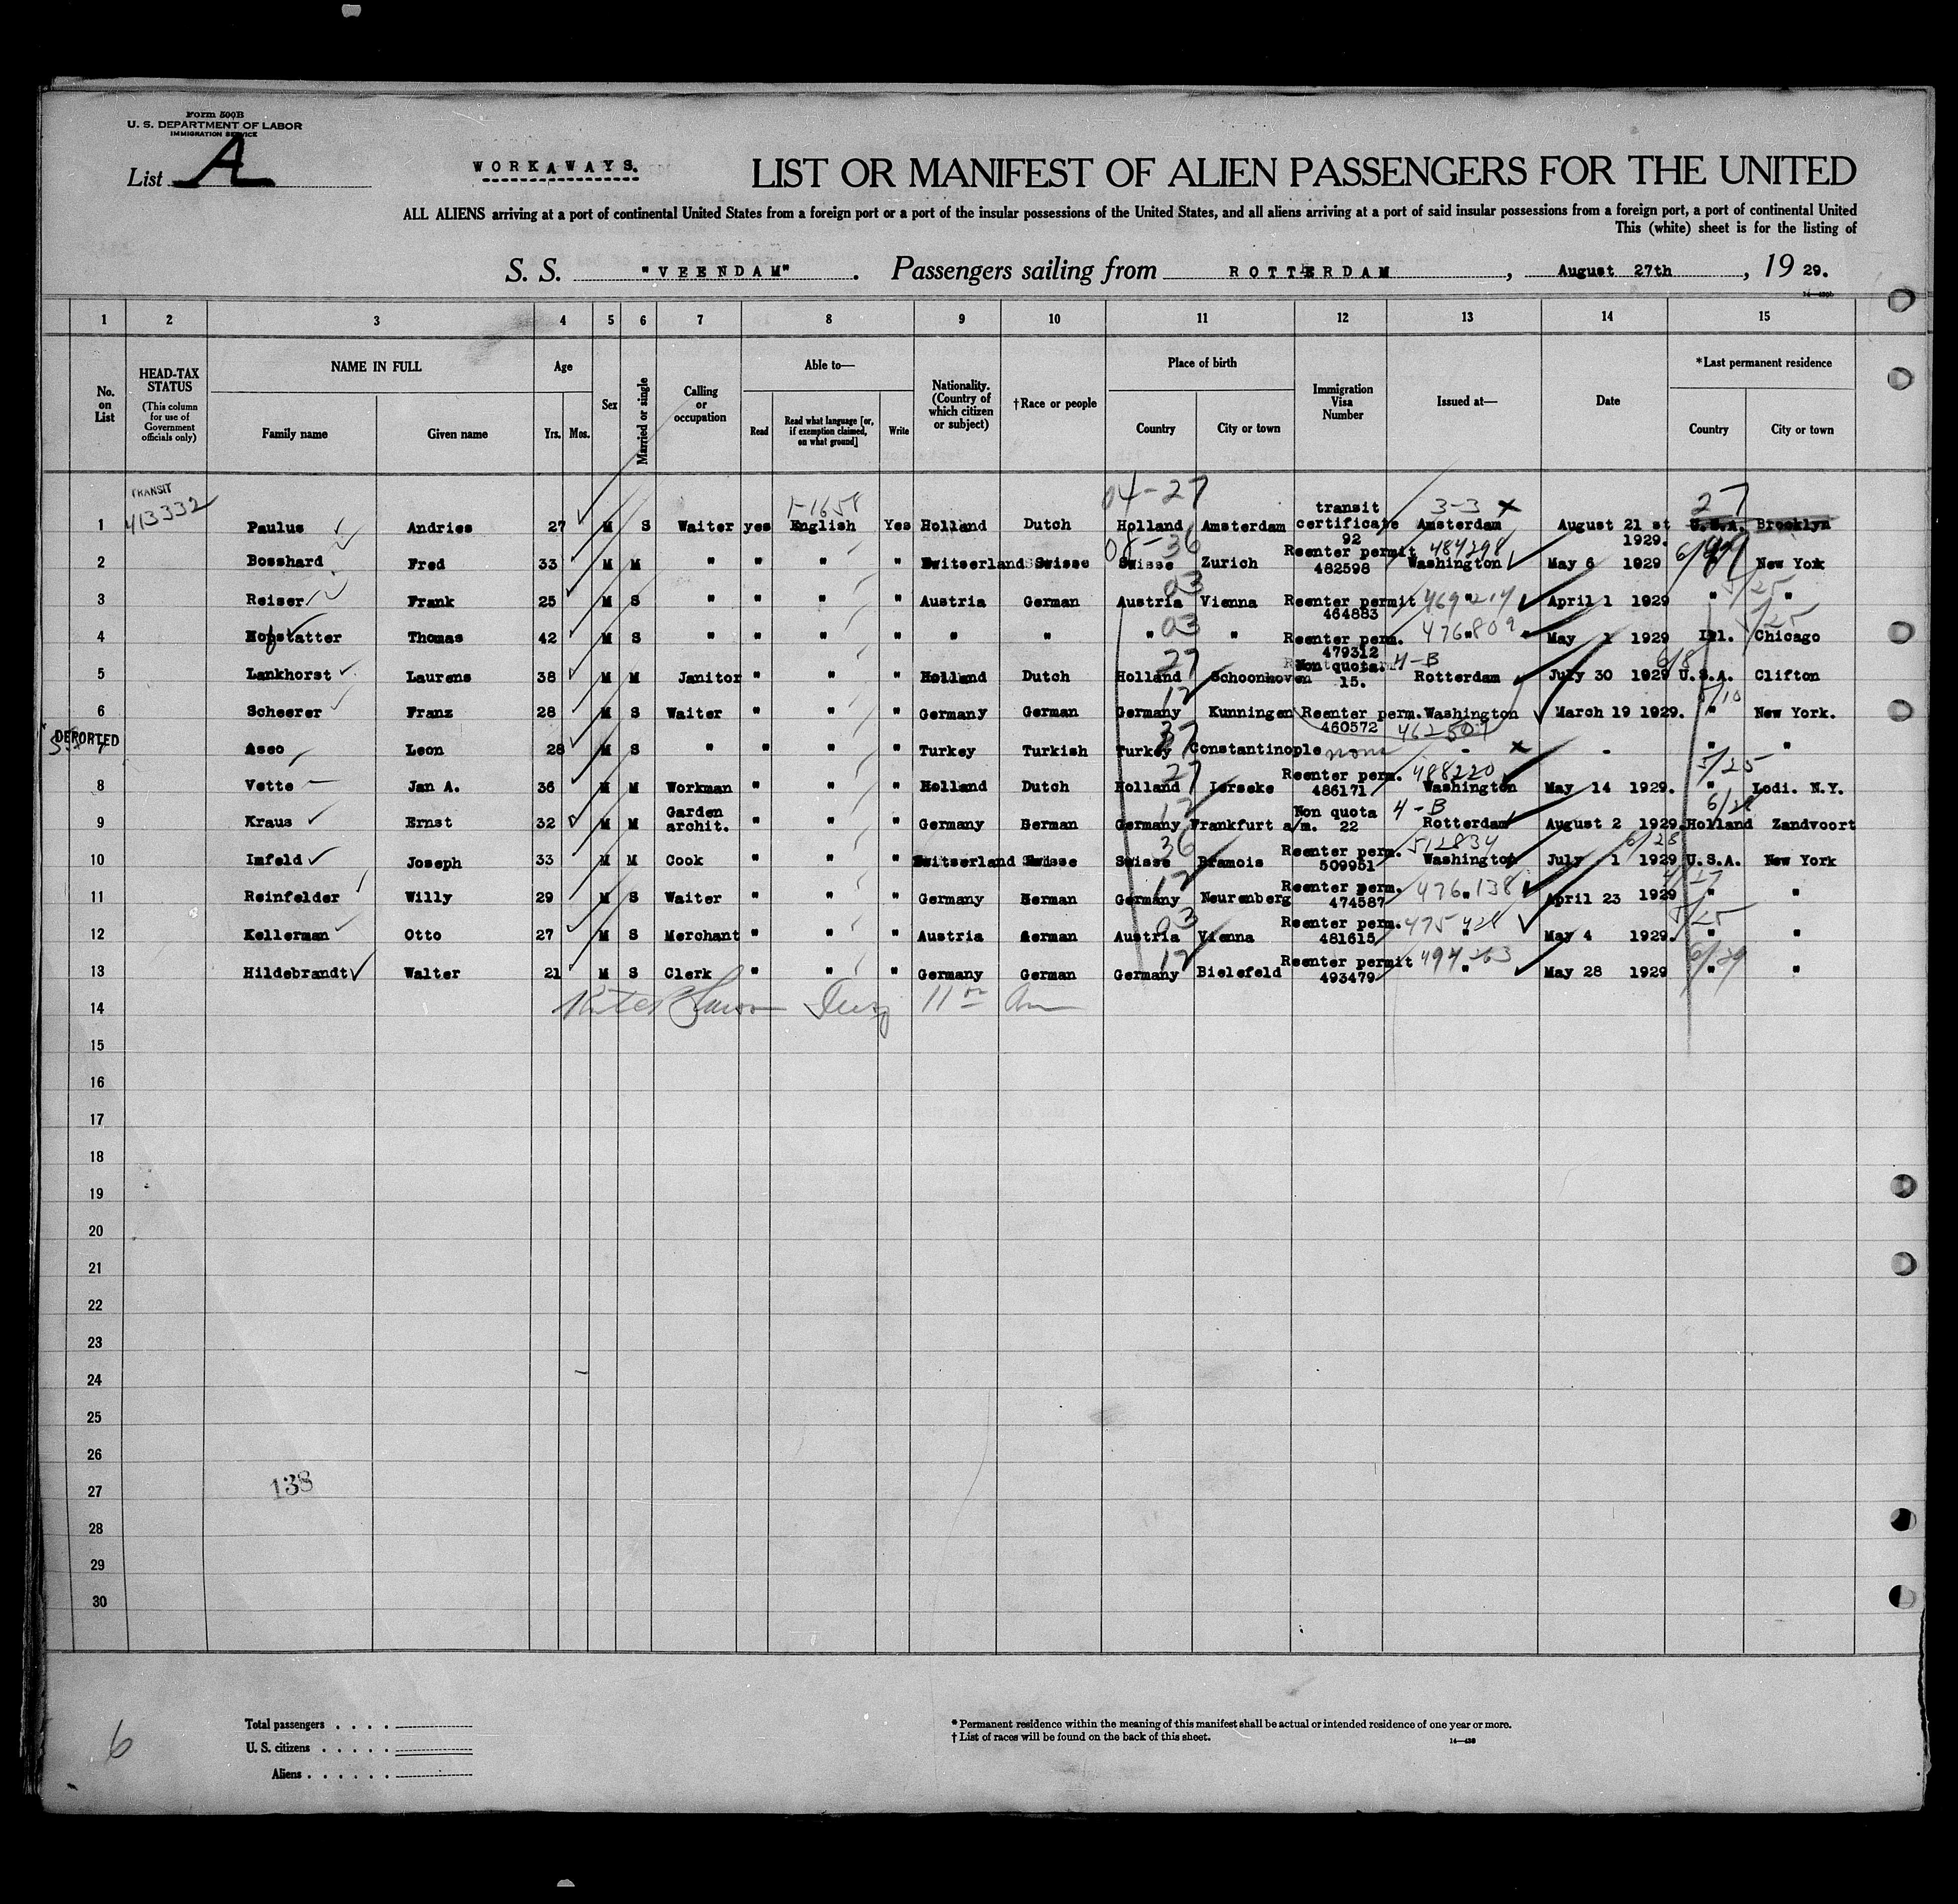 Form 500B
U. S. DEPARTMENT OF LABOR
IMMIGRATION SERVICE
List A
WORKAWAYS.
LIST OR MANIFEST OF ALIEN PASSENGERS FOR THE UNITED
ALL ALIENS arriving at a port of continental United States from a foreign port or a port of the insular possessions of the United States, and all aliens arriving at a port of said insular possessions from a foreign port, a port of continental United
This (white) sheet is for the listing of
S. S. "VEENDAM". Passengers sailing from ROTTERDAM, August 27th, 19 29.
1 2 3 4 5 6 7 8 9 10 11 12 13 14 15
No. on List
HEAD-TAX STATUS (This column for use of Government officials only)
NAME IN FULL
Family name Given name
Age
Yrs. Mos.
Sex
Married or single
Calling or occupation
Able to—
Read Read what language [or, if exemption claimed, on what ground] Write
Nationality. (Country of which citizen or subject)
†Race or people
Place of birth
Country City or town
Immigration Visa Number
Issued at—
Date
*Last permanent residence
Country City or town
TRANSIT 413332 1-1658 04-27 3-3 x 27
1 Paulus Andries 27 M S Waiter yes English Yes Holland Dutch Holland Amsterdam transit certificate 92 Amsterdam August 21 st 1929. U.S.A. Brooklyn
08-36 484298
2 Bosshard Fred 33 M M " " " " Switserland Swisse Swisse Zurich Reenter permit 482598 Washington May 6 1929 " New York
03 469214 5/25
3 Reiser Frank 25 M S " " " " Austria German Austria Vienna Reenter permit 464883 " April 1 1929 " "
03 476809 5/25
4 Hofstatter Thomas 42 M S " " " " " " " " Reenter perm. 479312 " May 1 1929 Ill. Chicago
27 4-B 6/8
5 Lankhorst Laurens 38 M M Janitor " " " Holland Dutch Holland Schoonhoven Non quota. 15. Rotterdam July 30 1929 U.S.A. Clifton
12
6 Scheerer Franz 28 M S Waiter " " " Germany German Germany Kunningen Reenter perm. 460572 Washington March 19 1929. " New York.
DEPORTED 462807
7 Aseo Leon 28 M S " " " " Turkey Turkish Turkey Constantinople none - x - " "
27 488220 5/25
8 Vette Jan A. 36 M M Workman " " " Holland Dutch Holland Ierseke Reenter perm. 486171 Washington May 14 1929. " Lodi. N.Y.
12 4-B
9 Kraus Ernst 32 M M Garden archit. " " " Germany German Germany Frankfurt a/m. Non quota 22 Rotterdam August 2 1929. Holland Zandvoort
36 512834 6/28
10 Imfeld Joseph 33 M M Cook " " " Switserland Swisse Swisse Bramois Reenter perm. 509951 Washington July 1 1929 U.S.A. New York
12 476138
11 Reinfelder Willy 29 M S Waiter " " " Germany German Germany Neurenberg Reenter perm. 474587 " April 23 1929 " "
03 5/25
12 Kellerman Otto 27 M S Merchant " " " Austria German Austria Vienna Reenter perm. 481615 " May 4 1929. " "
12 494263 6/29
13 Hildebrandt Walter 21 M S Clerk " " " Germany German Germany Bielefeld Reenter permit 493479 " May 28 1929 " "
14
15
16
17
18
19
20
21
22
23
24
25
26
27 138
28
29
30
6
Total passengers . . . .
U. S. citizens . . . . .
Aliens . . . . . .
* Permanent residence within the meaning of this manifest shall be actual or intended residence of one year or more.
† List of races will be found on the back of this sheet.